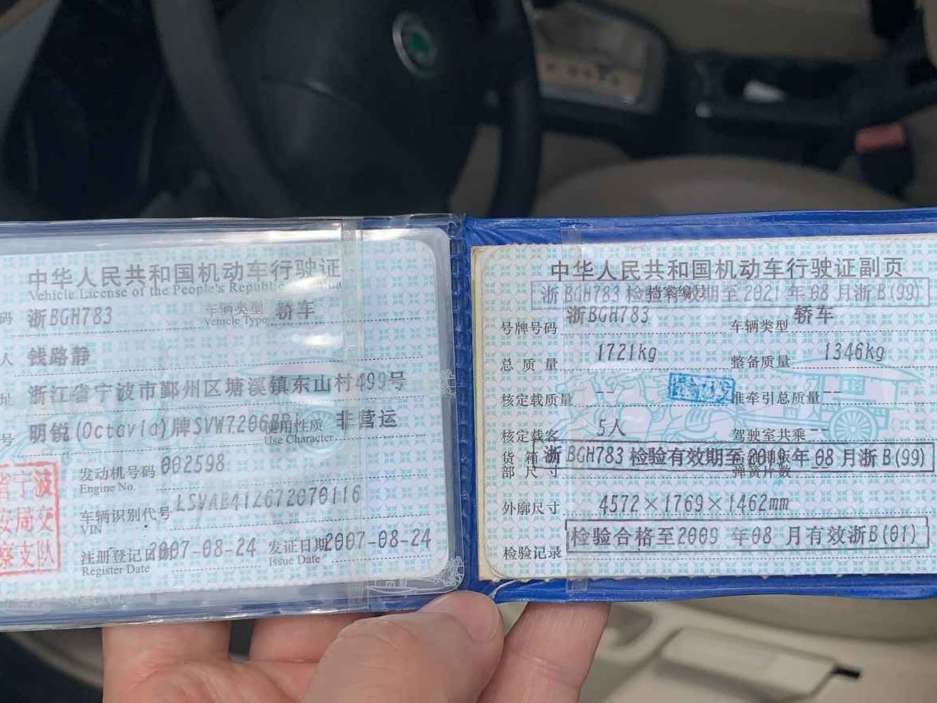 中华人民共和国机动车行驶证
Vehicle License of the People's Republic
码 浙BGH783 车辆类型 轿车
Vehicle Type
人 钱路静
址 浙江省宁波市鄞州区塘溪镇东山村499号
号 明锐(Octavia)牌SVW7206 使用性质 非营运
Use Character
发动机号码 002598
Engine No.
车辆识别代号 LSVAB41Z672070116
VIN
注册登记日期 2007-08-24 发证日期 2007-08-24
Register Date Issue Date
省宁波
安局交
察支队
中华人民共和国机动车行驶证副页
浙BGH783 检验有效期至2021年08月浙B(99)
号牌号码 浙BGH783 车辆类型 轿车
总质量 1721kg 整备质量 1346kg
核定载质量 -- 准牵引总质量 --
核定载客 5人 驾驶室共乘 --
货箱
部尺寸
浙BGH783 检验有效期至 年08月浙B(99)
外廓尺寸 4572×1769×1462mm
检验记录 检验合格至2009年08月有效浙B(01)